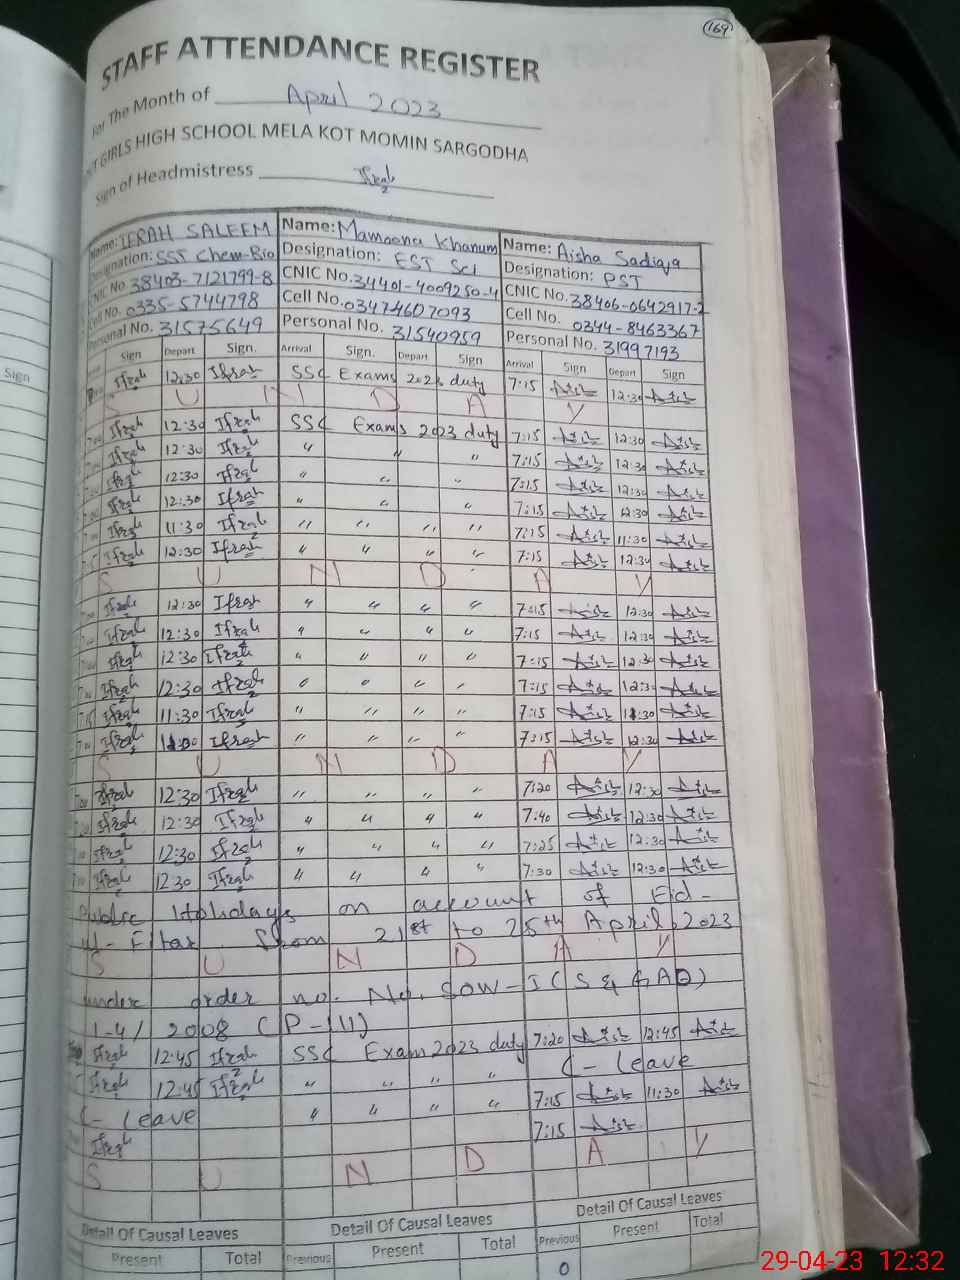 169
STAFF ATTENDANCE REGISTER
For The Month of April 2023
GIRLS HIGH SCHOOL MELA KOT MOMIN SARGODHA
Sign of Headmistress Ifrah
Name: IFRAH SALEEM Name: Mamoona Khanum Name: Aisha Sadiqa
Designation: SST Chem-Bio Designation: EST Sci Designation: PST
CNIC No. 38403-7121799-8 CNIC No. 34401-4009250-4 CNIC No. 38406-0642917-2
Cell No. 0335-5744798 Cell No. 03474607093 Cell No. 0344-8463367
Personal No. 31575649 Personal No. 31540959 Personal No. 31997193
Sign Sign Depart Sign. Arrival Sign. Depart Sign Arrival Sign Depart Sign
Ifrah 12:30 Ifrah SSC Exams 2023 duty 7:15 12:30
S U N D A Y
Ifrah 12:30 Ifrah SSC Exams 2023 duty 7:15 12:30
Ifrah 12:30 Ifrah " " " 7:15 12:30
Ifrah 12:30 Ifrah " " " 7:15 12:30
Ifrah 12:30 Ifrah " " " 7:15 12:30
Ifrah 11:30 Ifrah " " " " 7:15 11:30
Ifrah 12:30 Ifrah " " " " 7:15 12:30
S U N D A Y
Ifrah 12:30 Ifrah " " " " 7:15 12:30
Ifrah 12:30 Ifrah " " " " 7:15 12:30
Ifrah 12:30 Ifrah " " " " 7:15 12:30
Ifrah 12:30 Ifrah " " " " 7:15 12:30
7:15 Ifrah 11:30 Ifrah " " " " 7:15 11:30
Ifrah Ifrah " " " " 7:15 12:30
S U N D A Y
Ifrah 12:30 Ifrah " " " " 7:20 12:30
Ifrah 12:30 Ifrah " " " " 7:40 12:30
Ifrah 12:30 Ifrah " " " " 7:25 12:30
Ifrah 12:30 Ifrah " " " " 7:30 12:30
Public Holidays on account of Eid-
ul-Fitar from 21st to 25th April 2023
S U N D A Y
under order no. No. SOW-I (S & GAD)
1-4/2008 (P-III)
Ifrah 12:45 Ifrah SSC Exam 2023 duty 7:20 12:45
Ifrah 12:45 Ifrah " " " " C-Leave
C-Leave " " " " 7:15 11:30
Ifrah 7:15
S U N D A Y
Detail Of Causal Leaves Detail Of Causal Leaves Detail Of Causal Leaves
Present Total Previous Present Total Previous Present Total
0
29-04-23 12:32